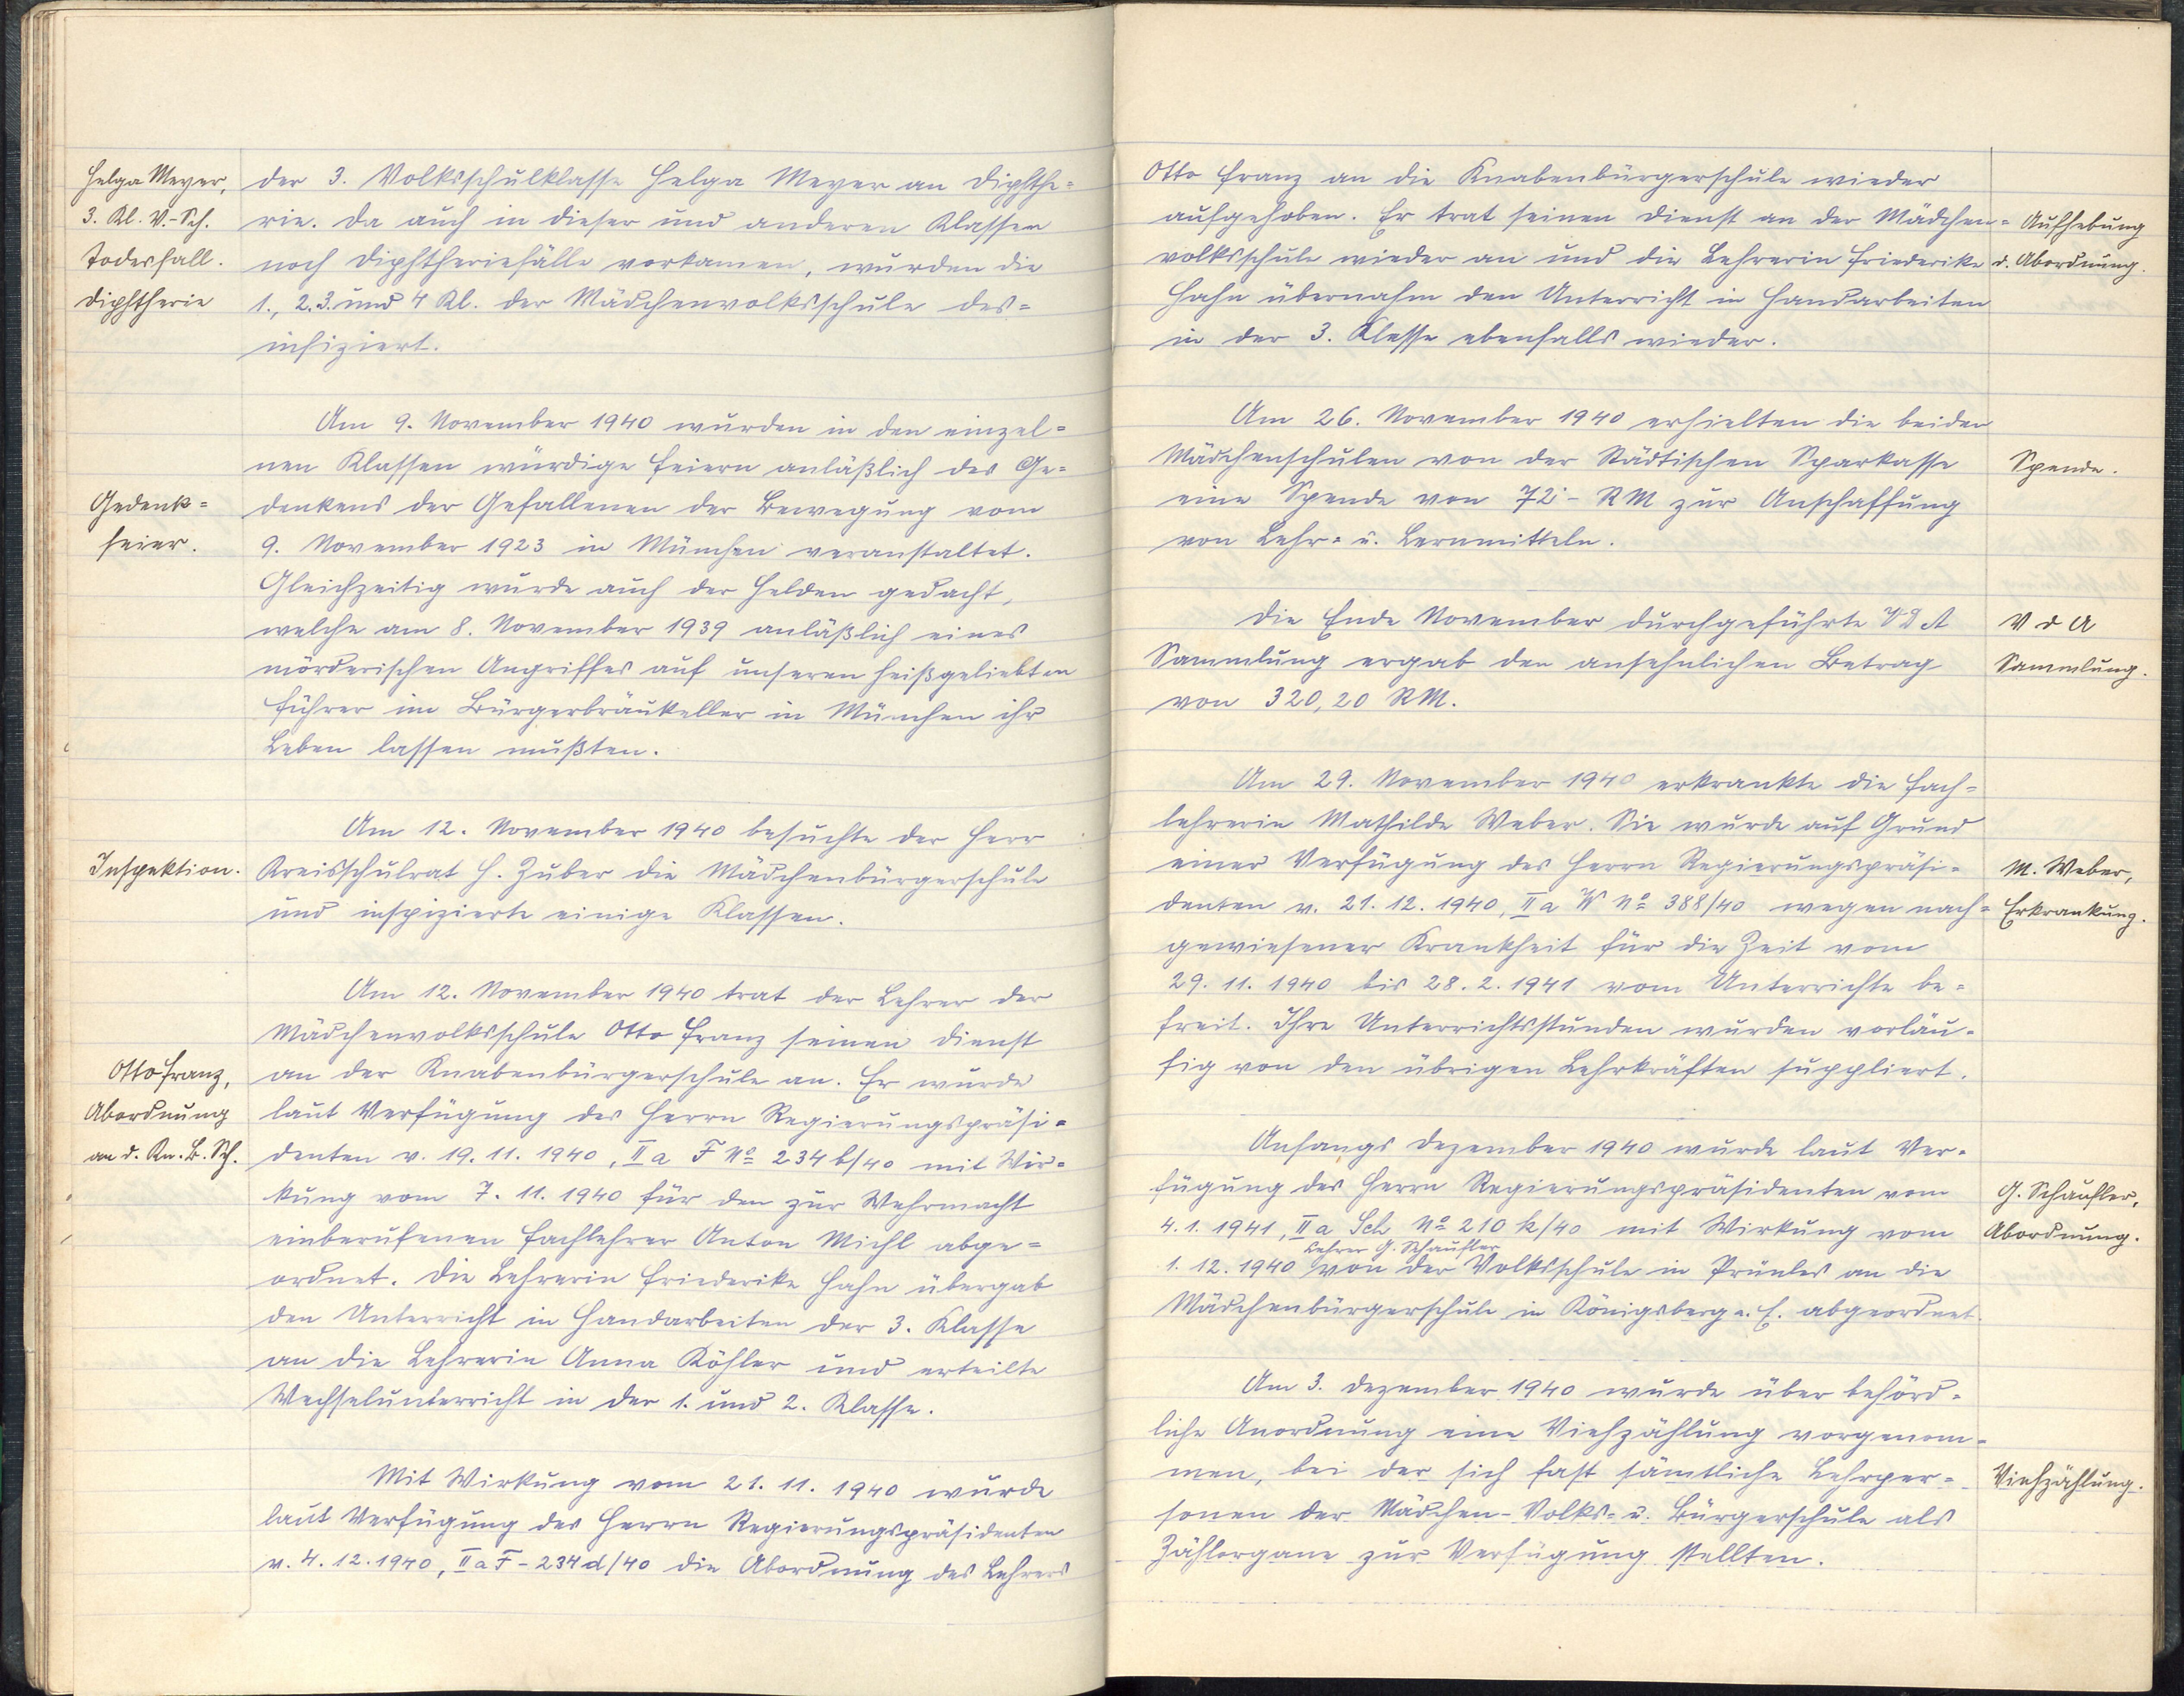 Helga Meyer,
3. Kl. V.-Sch.
Todesfall.
Diphtherie
der 3. Volksschulklasse Helga Meyer an Diphthe=
rie. Da auch in dieser und anderen Klassen
noch Diphtheriefälle vorkamen, wurden die
1., 2. 3. und 4 Kl. der Mädchenvolksschule des=
infiziert.
Am 9. November 1940 wurden in den einzel=
nen Klassen würdige Feiern anläßlich des Ge=
Gedenk=
feier.
denkens der Gefallenen der Bewegung vom
9. November 1923 in München veranstaltet.
Gleichzeitig wurde auch der Helden gedacht,
welche am 8. November 1939 anläßlich eines
mörderischen Angriffes auf unseren heißgeliebten
Führer im Bürgerbräukeller in München ihr
Leben lassen mußten.
Am 12. November 1940 besuchte der Herr
Inspektion.
Kreisschulrat H. Zuber die Mädchenbürgerschule
und inspizierte einige Klassen.
Am 12. November 1940 trat der Lehrer der
Mädchenvolksschule Otto Franz seinen Dienst
Otto Franz,
Abordnung
an d. Kn. B. Sch.
an der Knabenbürgerschule an. Er wurde
laut Verfügung des Herrn Regierungspräsi=
denten v. 19. 11. 1940, II a F No 234 b/40 mit Wir=
kung vom 7. 11. 1940 für den zur Wehrmacht
einberufenen Fachlehrer Anton Michl abge=
ordnet. Die Lehrerin Friederike Hahn übergab
den Unterricht in Handarbeiten der 3. Klasse
an die Lehrerin Anna Köhler und erteilte
Wechselunterricht in der 1. und 2. Klasse.
Mit Wirkung vom 21. 11. 1940 wurde
laut Verfügung des Herrn Regierungspräsidenten
v. 4. 12. 1940, II a F - 234 d/40 die Abordnung des Lehrers
Otto Franz an die Knabenbürgerschule wieder
aufgehoben. Er trat seinen Dienst an der Mädchen=
volksschule wieder an und die Lehrerin Friederike
Hahn übernahm den Unterricht in Handarbeiten
in der 3. Klasse ebenfalls wieder.
Aufhebung
d. Abordnung.
Am 26. November 1940 erhielten die beiden
Mädchenschulen von der Städtischen Sparkasse
eine Spende von 72·- RM zur Anschaffung
von Lehr- u. Lernmitteln.
Spende.
Die Ende November durchgeführte V D A
Sammlung ergab den ansehnlichen Betrag
von 320,20 RM.
V d A
Sammlung.
Am 29. November 1940 erkrankte die Fach=
lehrerin Mathilde Weber. Sie wurde auf Grund
einer Verfügung des Herrn Regierungspräsi=
denten v. 21. 12. 1940, II a W No 388/40 wegen nach=
gewiesener Krankheit für die Zeit vom
29. 11. 1940 bis 28. 2. 1941 vom Unterrichte be=
freit. Ihre Unterrichtsstunden wurden vorläu=
fig von den übrigen Lehrkräften suppliert.
M. Weber,
Erkrankung.
Anfangs Dezember 1940 wurde laut Ver=
fügung des Herrn Regierungspräsidenten vom
4. 1. 1941, II a Sch No 210 k/40 mit Wirkung vom
Lehrer G. Schaufler
1. 12. 1940 von der Volksschule in Prünles an die
Mädchenbürgerschule in Königsberg a. E. abgeordnet.
G. Schaufler,
Abordnung.
Am 3. Dezember 1940 wurde über behörd=
liche Anordnung eine Viehzählung vorgenom=
men, bei der sich fast sämtliche Lehrper=
sonen der Mädchen-Volks- u. Bürgerschule als
Zählorgane zur Verfügung stellten.
Viehzählung.